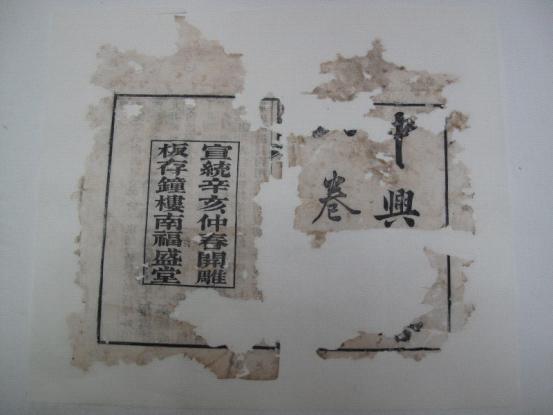 中興
卷
宣統辛亥仲春開雕
板存鐘樓南福盛堂